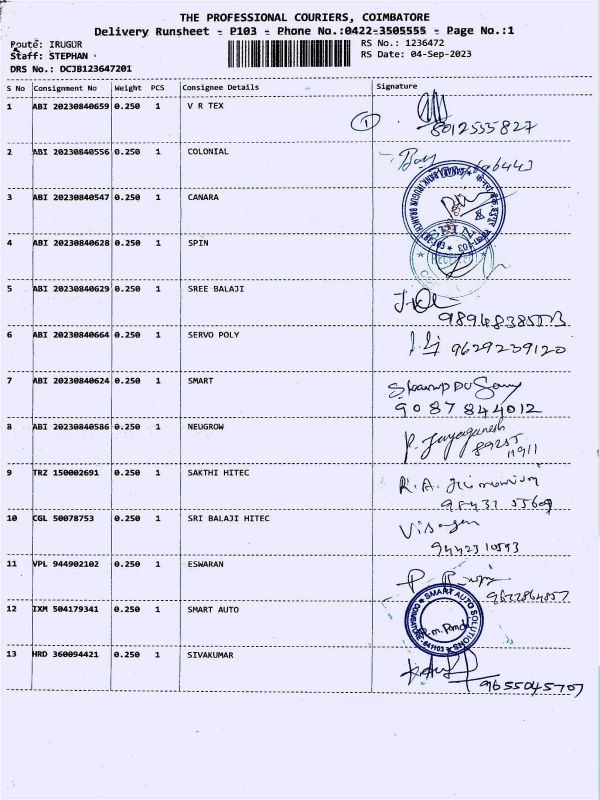 THE PROFESSIONAL COURIERS, COIMBATORE
Delivery Runsheet - P103 - Phone No.:0422-3505555 - Page No.:1
Route: IRUGUR
Staff: STEPHAN
DRS No.: DCJB123647201
RS No.: 1236472
RS Date: 04-Sep-2023
S No Consignment No Weight PCS Consignee Details Signature
1 ABI 20230840659 0.250 1 V R TEX
1 8012535827
2 ABI 20230840556 0.250 1 COLONIAL
3 ABI 20230840547 0.250 1 CANARA
4 ABI 20230840628 0.250 1 SPIN
5 ABI 20230840629 0.250 1 SREE BALAJI
6 ABI 20230840664 0.250 1 SERVO POLY
9629239120
7 ABI 20230840624 0.250 1 SMART
9087844012
8 ABI 20230840586 0.250 1 NEUGROW
P. Jayaganesh
89255
11911
9 TRZ 150002691 0.250 1 SAKTHI HITEC
10 CGL 50078753 0.250 1 SRI BALAJI HITEC
9442310593
11 VPL 944902102 0.250 1 ESWARAN
12 IXM 504179341 0.250 1 SMART AUTO
SMART AUTO SOLUTIONS
COIMBATORE - 641103
13 HRD 360094421 0.250 1 SIVAKUMAR
9655045707